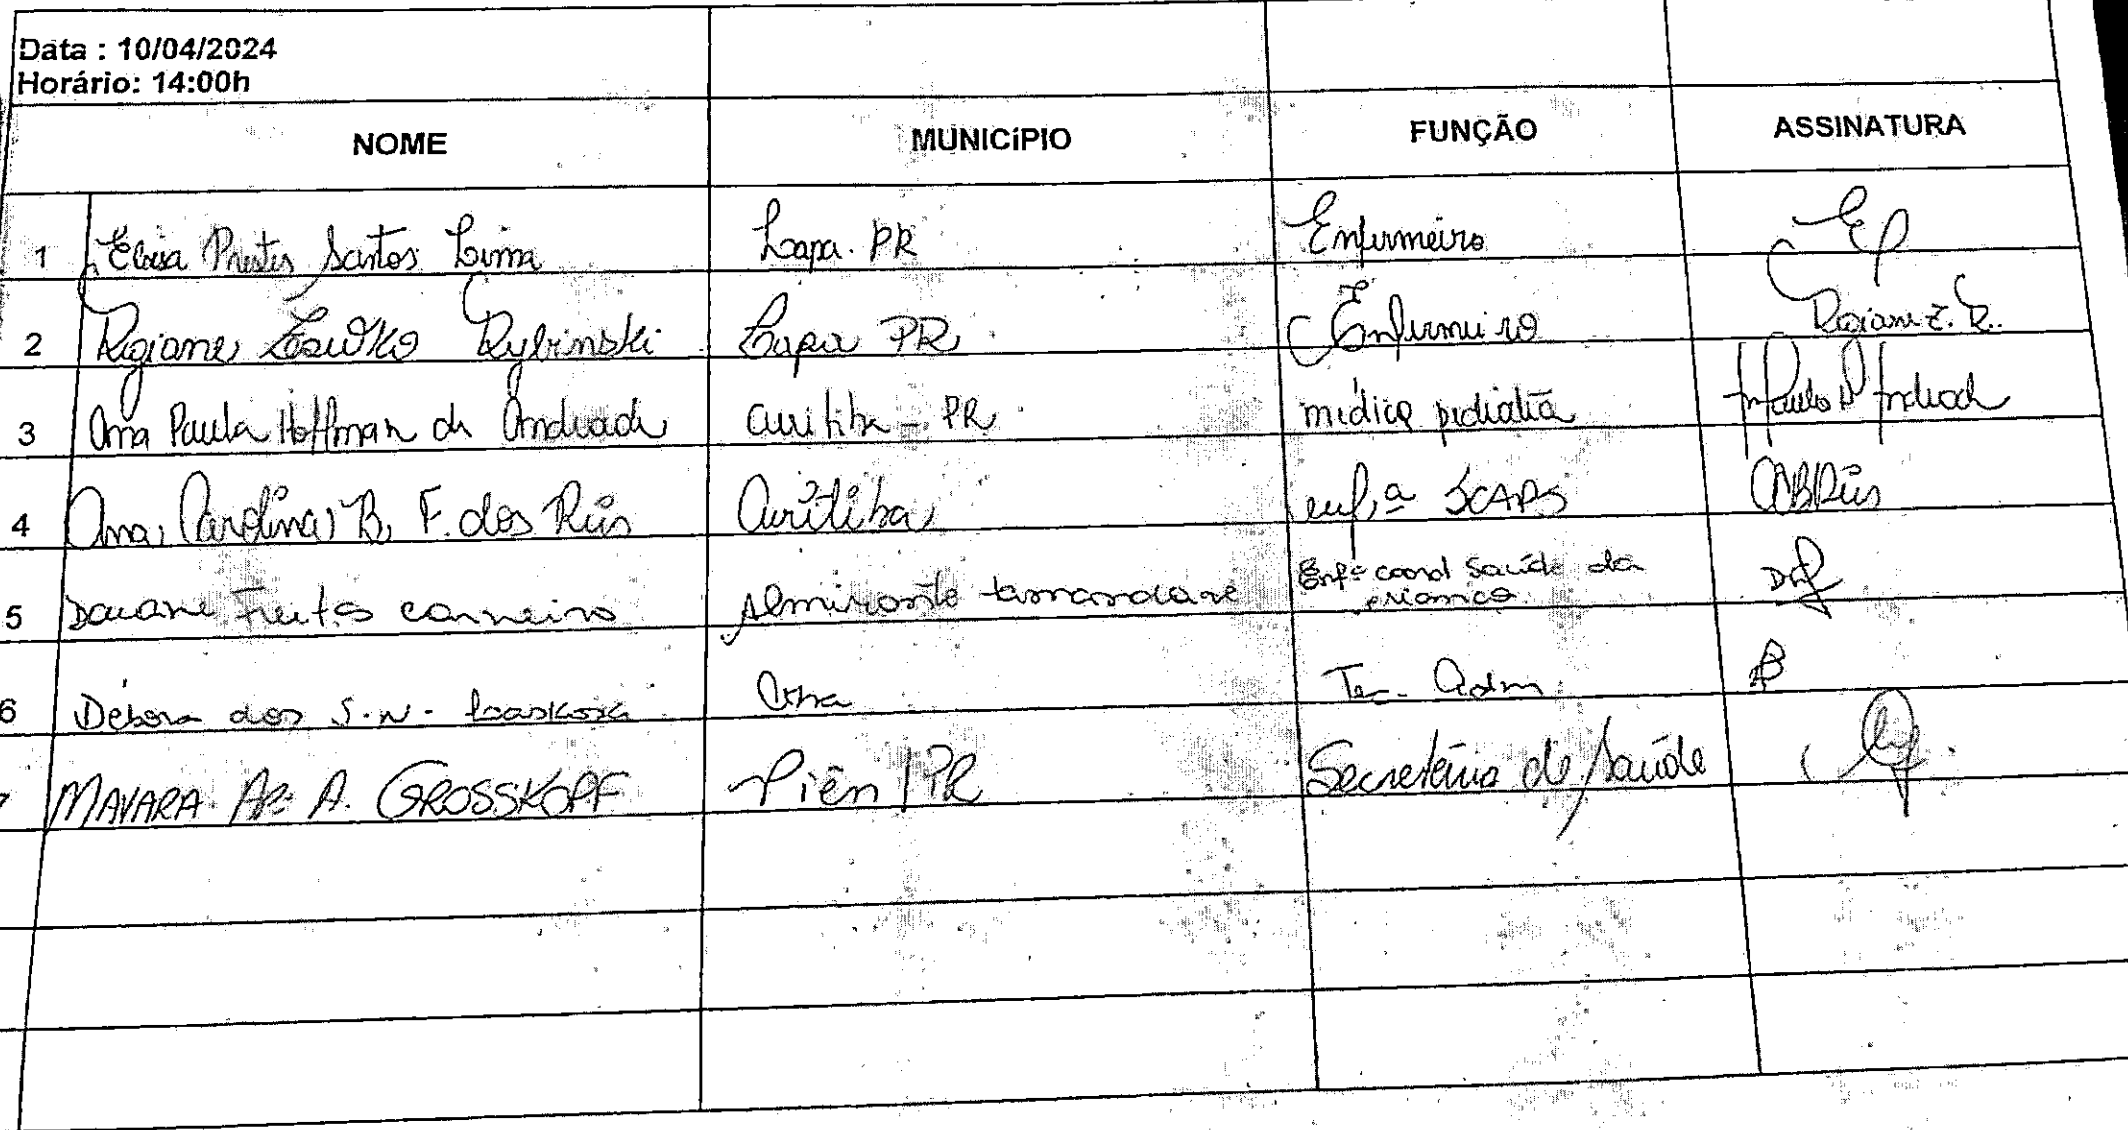 Data : 10/04/2024
Horário: 14:00h
NOME MUNICíPIO FUNÇÃO ASSINATURA
1 Santos Lima Lapa. PR Enfermeiro EP
2 Regiane Rybinski Lapa PR Enfermeiro Regiane Z. R.
3 Ana Paula Hoffman de Andrade Curitiba - PR médica pediatra
4 Ana Carolina B. F. dos Reis Curitiba enf.ª SCAPS
5 Daiane Freitas carneiro Almirante tamandaré Enfª coord Saúde da
criança
6 Débora dos S. N. Ctba Tec. Adm
7 MAYARA AP. A. GROSSKOPF Piên / PR Secretária de Saúde